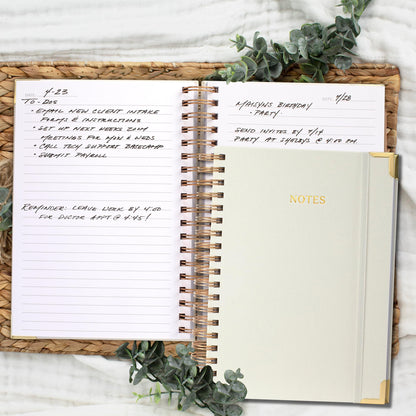 DATE 4-23
TO-DOS
• EMAIL NEW CLIENT INTAKE
FORMS & INSTRUCTIONS
• SET UP NEXT WEEKS ZOOM
MEETINGS FOR MON & WEDS.
• CALL TECH SUPPORT BASECAMP
• SUBMIT PAYROLL
REMINDER: LEAVE WORK BY 4:00
FOR DOCTOR APPT @ 4:45!
DATE 4/28
MAISYNS BIRTHDAY
• PARTY.
SEND INVITES BY 7/14
PARTY AT SHELBYS @ 4:00 PM.
NOTES